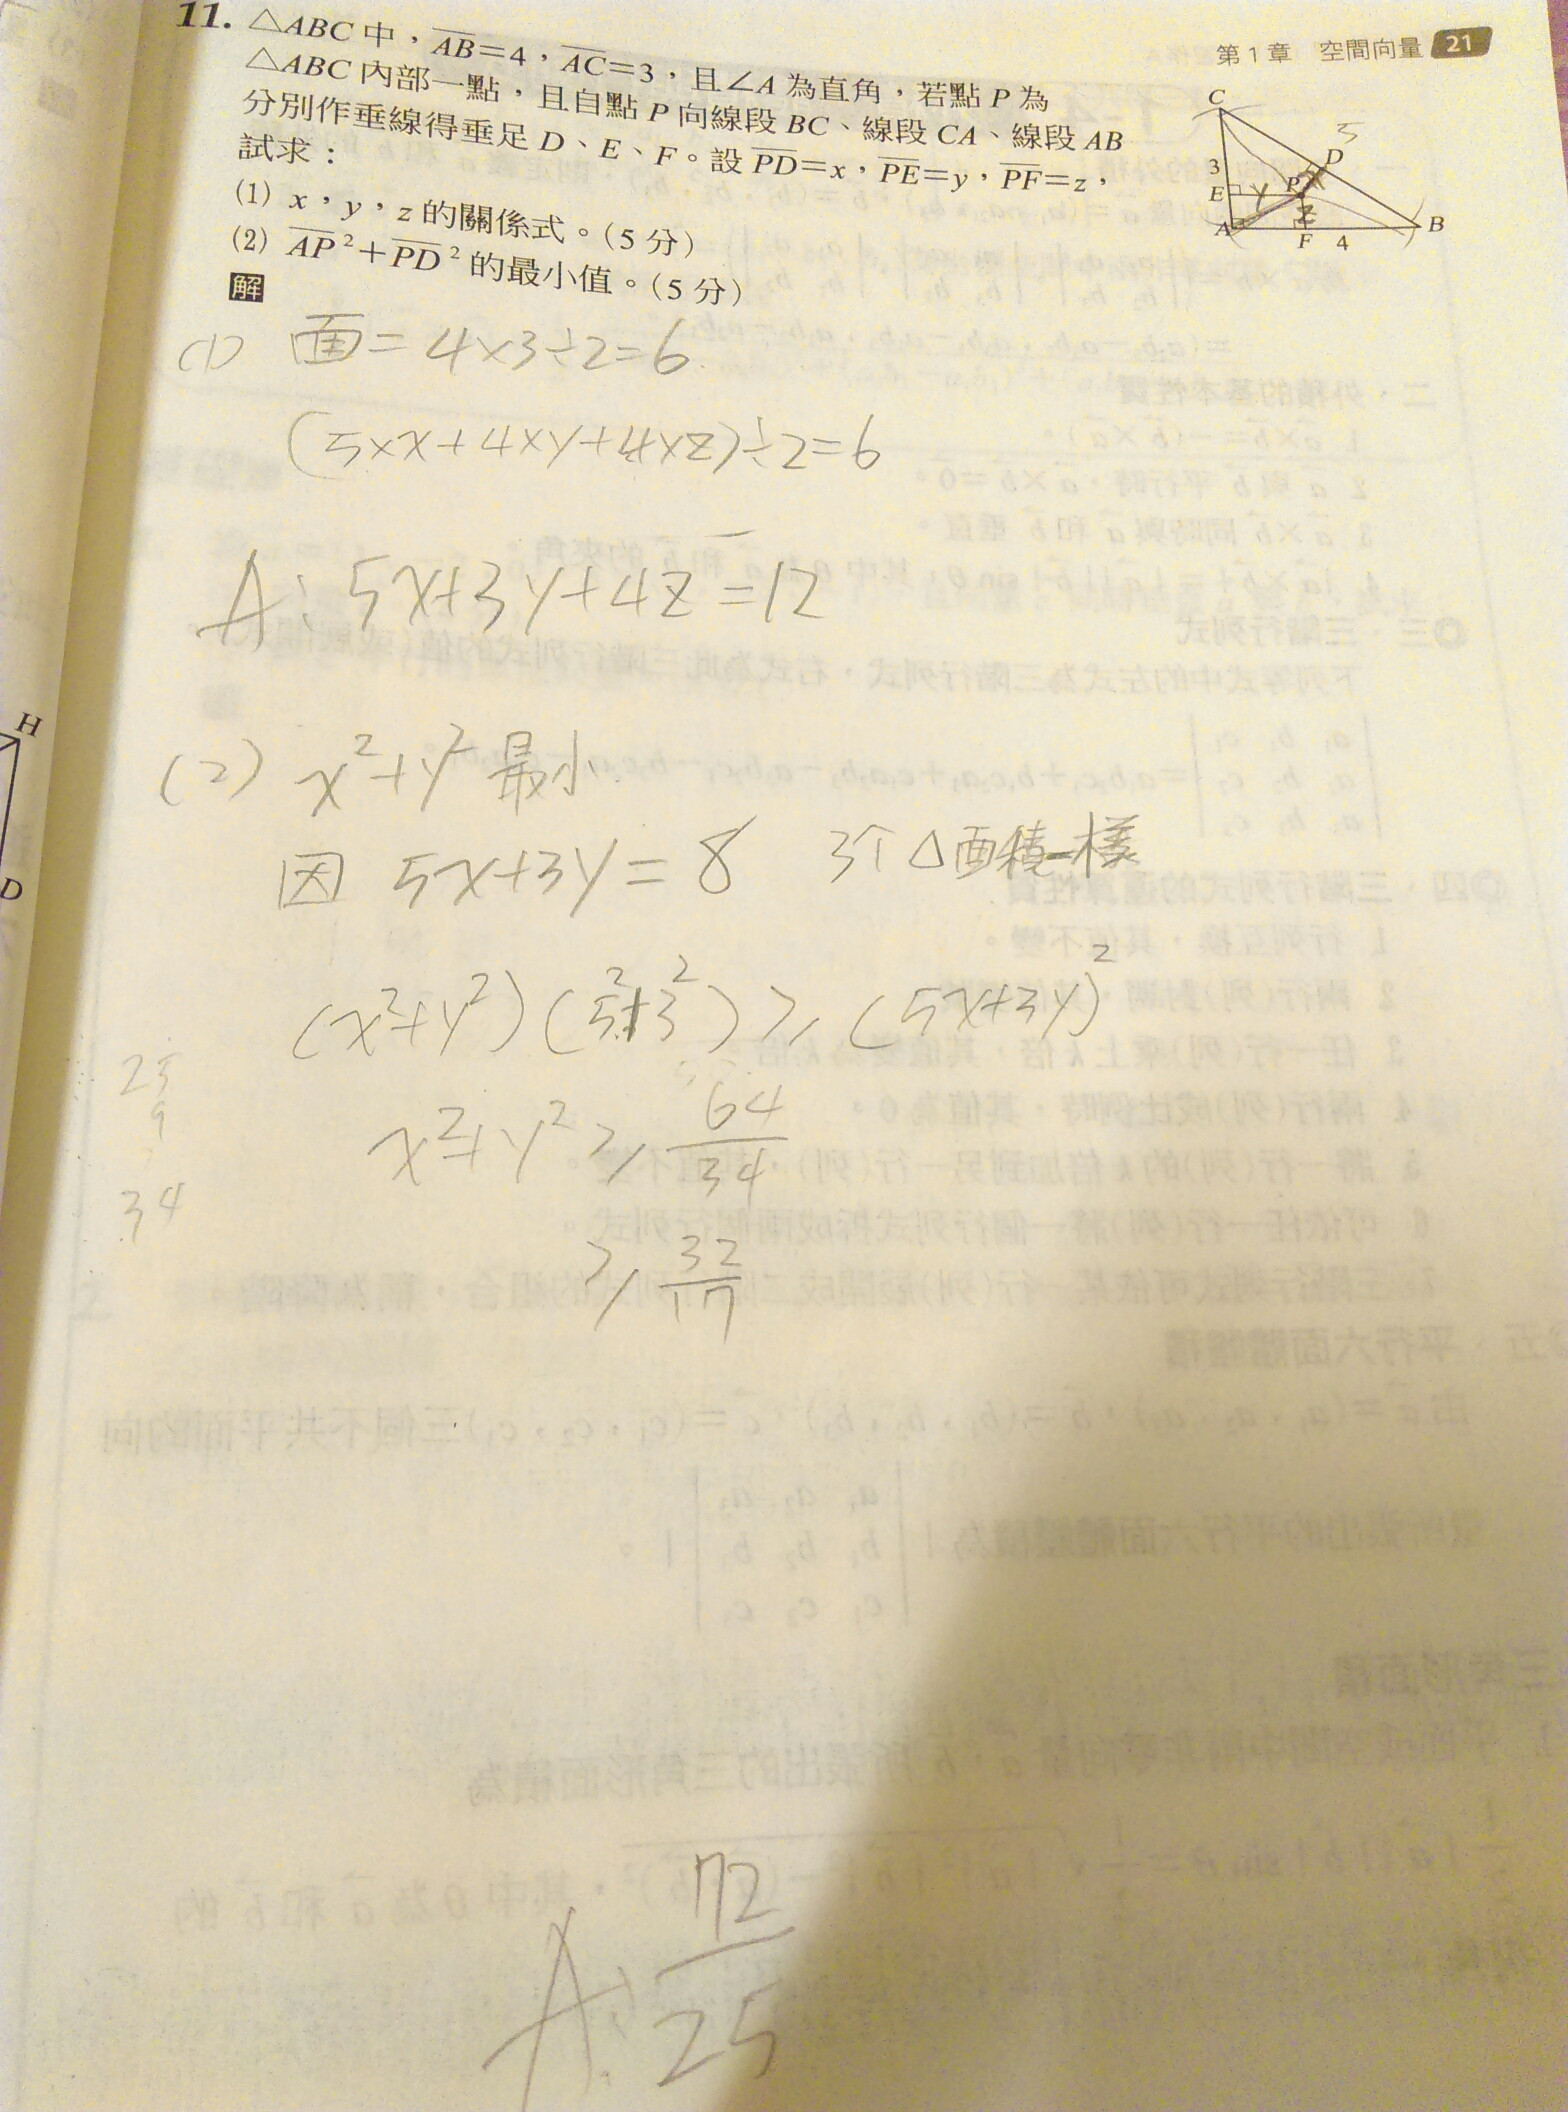 第1章 空間向量 21
11. △ABC 中，AB=4，AC=3，且∠A 為直角，若點 P 為
△ABC 內部一點，且自點 P 向線段 BC、線段 CA、線段 AB
分別作垂線得垂足 D、E、F。設 PD=x，PE=y，PF=z，
試求：
(1) x，y，z 的關係式。(5 分)
(2) AP²+PD² 的最小值。(5 分)
解
C
5
D
3
E
y
P
x
z
A
F
4
B
(1) 面=4×3÷2=6
(5×x+4×y+4×z)÷2=6
A: 5x+3y+4z=12
(2) x²+y² 最小
因 5x+3y=8 3个△面積一樣
(x²+y²)(5²+3²)≥(5x+3y)²
x²+y²≥64/34
≥32/17
25
9
34
A: 72/25
H
D